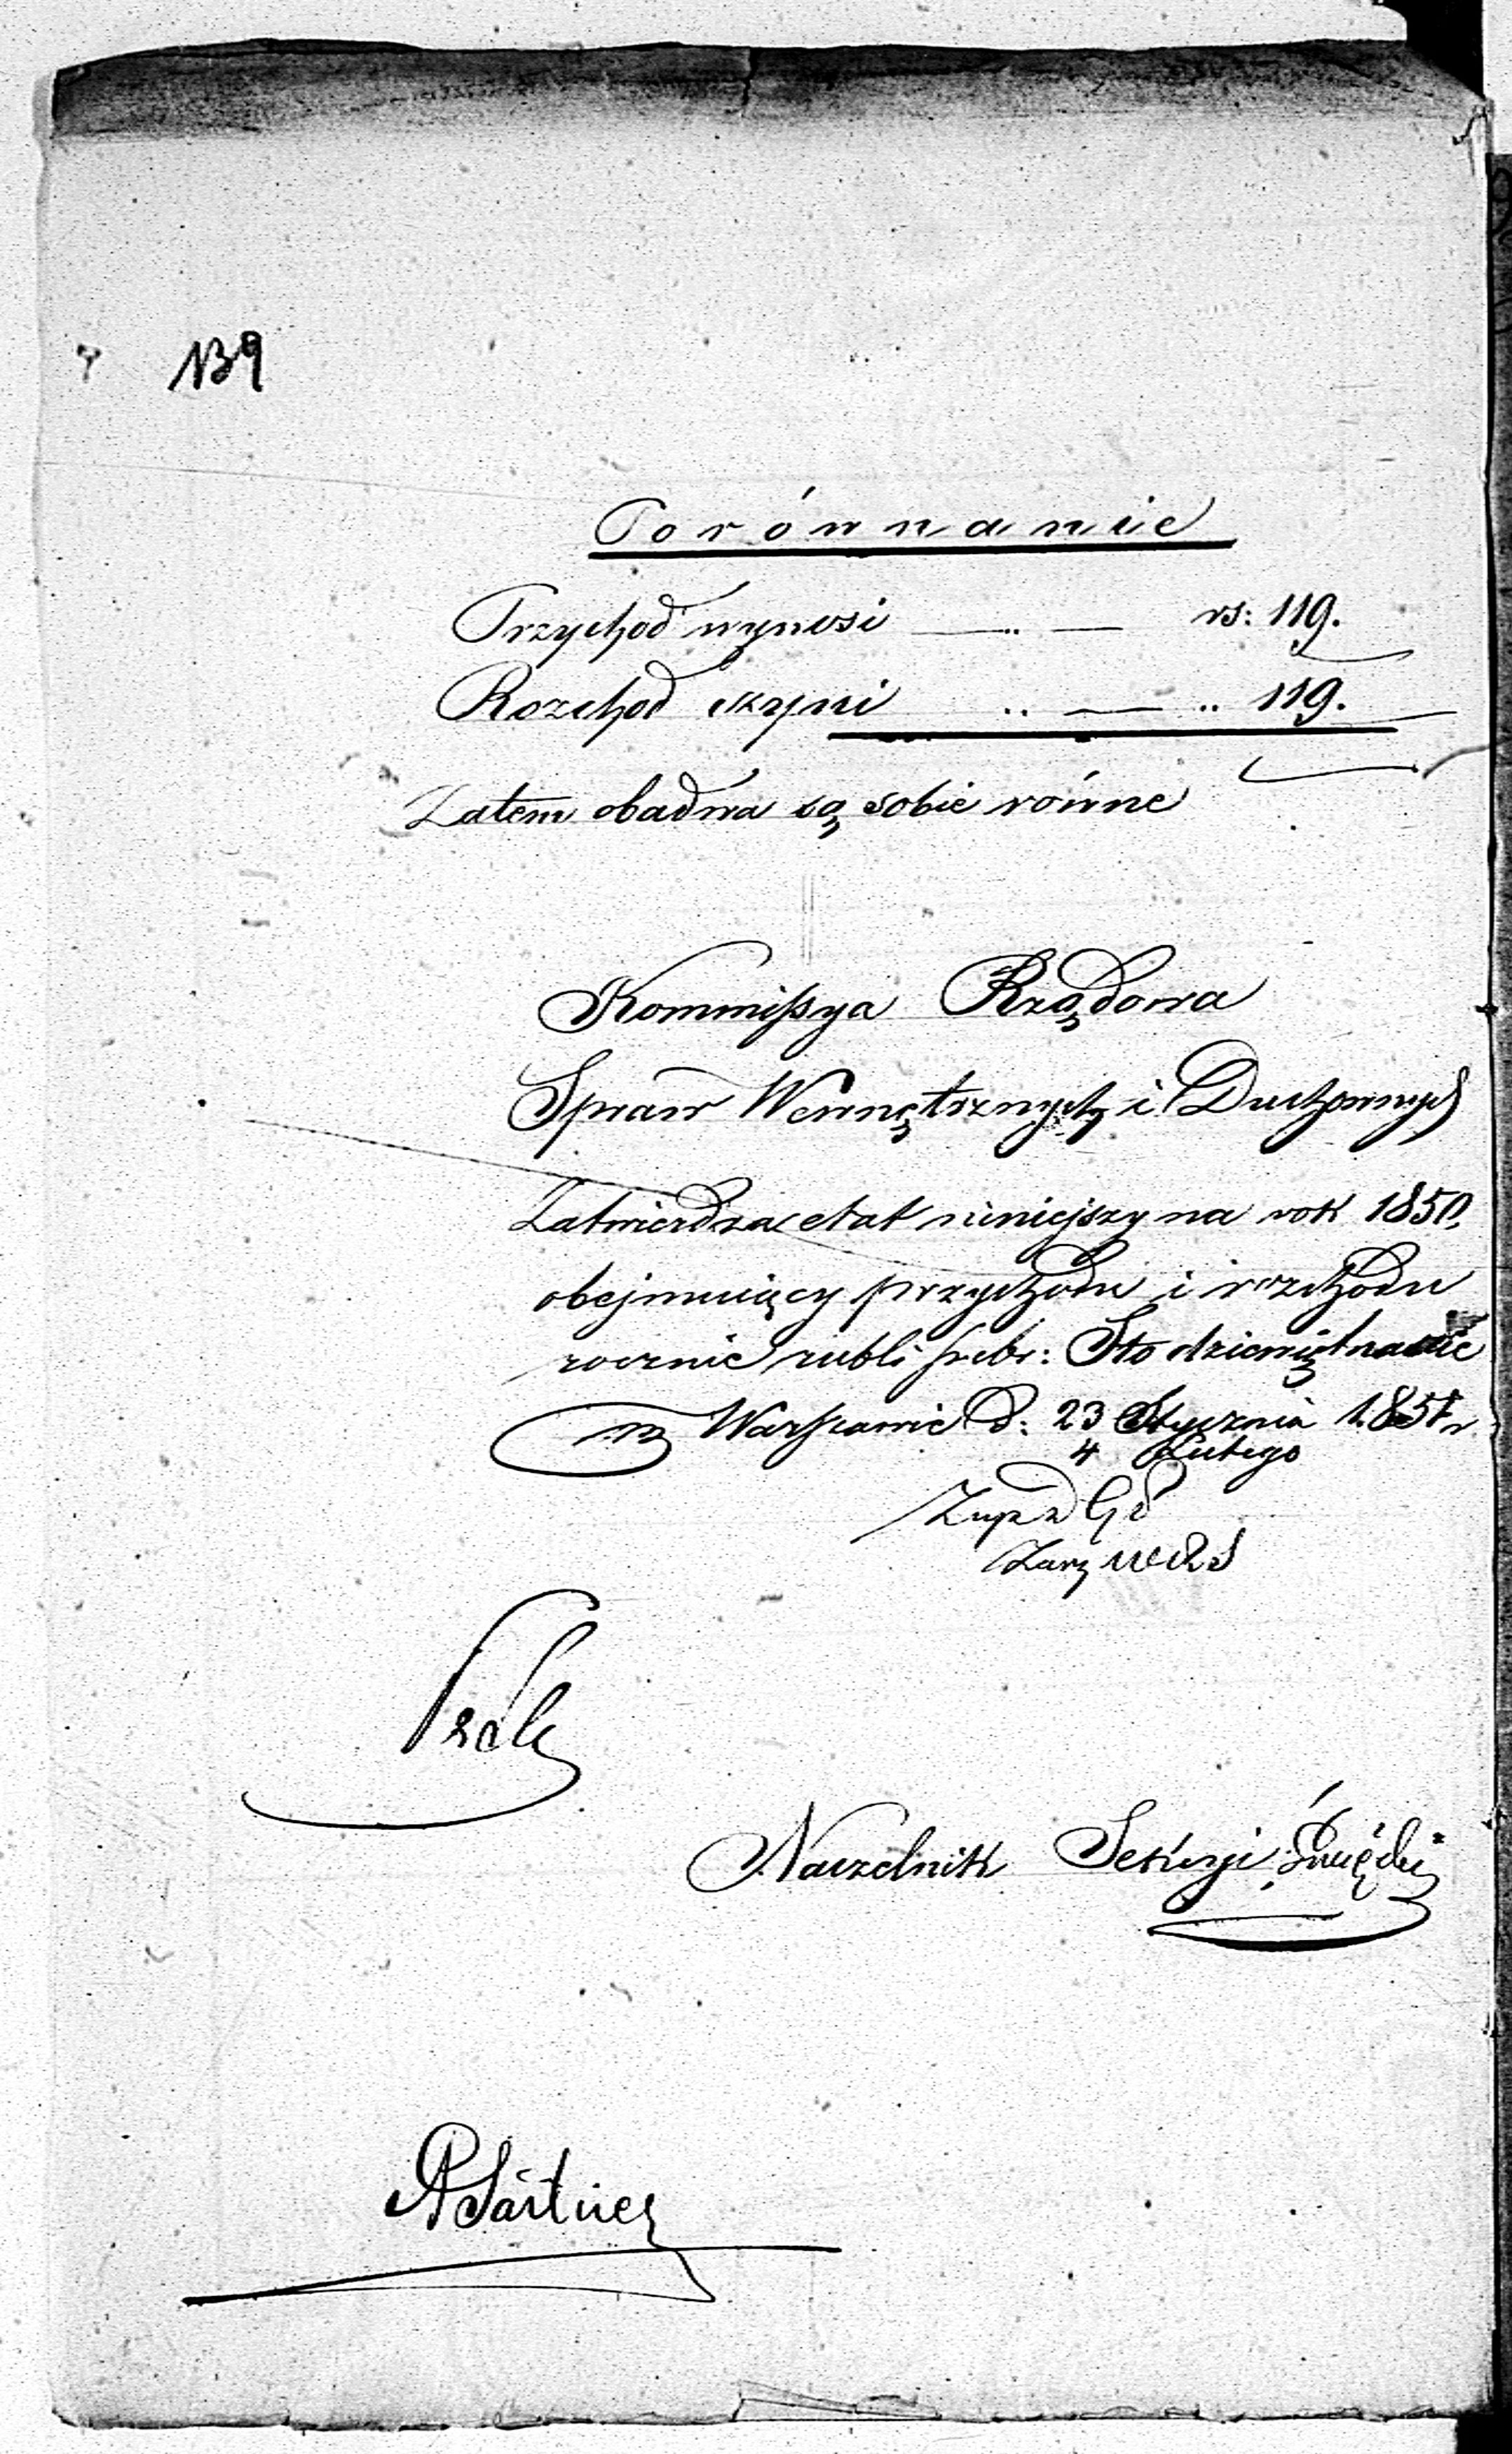 139
Porównanie
Przychod wynosi — .. — rs: 119.
Rozchod czyni .. — .. 119.
Zatem obadwa są sobie równe
Kommissya Rządowa
Spraw Wewnętrznych i Duchownych
Zatwierdza etat niniejszy na rok 1850,
obejmuiący przychodu i rozchodu
rocznie rubli srebr: Sto dziewiętnaście
w Warszawie d: 23 Stycznia 1851 r
4 Lutego
Naczelnik Sekcyi